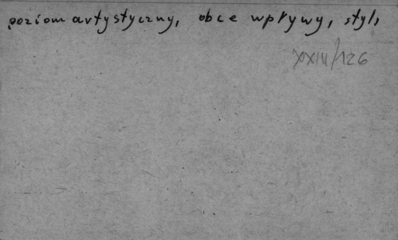 poziom artystyczny, obce wpływy, styl,
XXIII/126